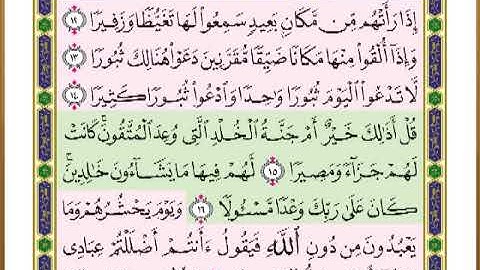 إِذَا رَأَتْهُم مِّن مَّكَانٍ بَعِيدٍ سَمِعُوا۟ لَهَا تَغَيُّظًا وَزَفِيرًا ١٢
وَإِذَآ أُلْقُوا۟ مِنْهَا مَكَانًا ضَيِّقًا مُّقَرَّنِينَ دَعَوْا۟ هُنَالِكَ ثُبُورًا ١٣
لَّا تَدْعُوا۟ ٱلْيَوْمَ ثُبُورًا وَٰحِدًا وَٱدْعُوا۟ ثُبُورًا كَثِيرًا ١٤
قُلْ أَذَٰلِكَ خَيْرٌ أَمْ جَنَّةُ ٱلْخُلْدِ ٱلَّتِى وُعِدَ ٱلْمُتَّقُونَ ۚ كَانَتْ
لَهُمْ جَزَآءً وَمَصِيرًا ١٥ لَّهُمْ فِيهَا مَا يَشَآءُونَ خَٰلِدِينَ ۚ
كَانَ عَلَىٰ رَبِّكَ وَعْدًا مَّسْـُٔولًا ١٦ وَيَوْمَ يَحْشُرُهُمْ وَمَا
يَعْبُدُونَ مِن دُونِ ٱللَّهِ فَيَقُولُ ءَأَنتُمْ أَضْلَلْتُمْ عِبَادِى